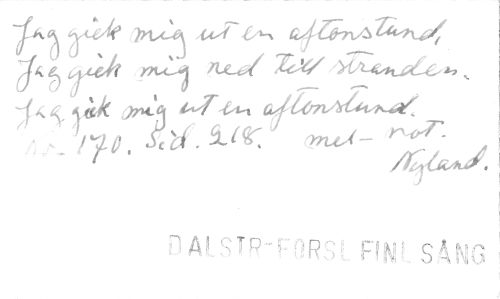 Jag gick mig ut en aftonstund,
Jag gick mig ned till stranden.
Jag gick mig ut en aftonstund.
No. 170. Sid. 218. mel-not.
Nyland.
DALSTR-FORSL FINL SÅNG